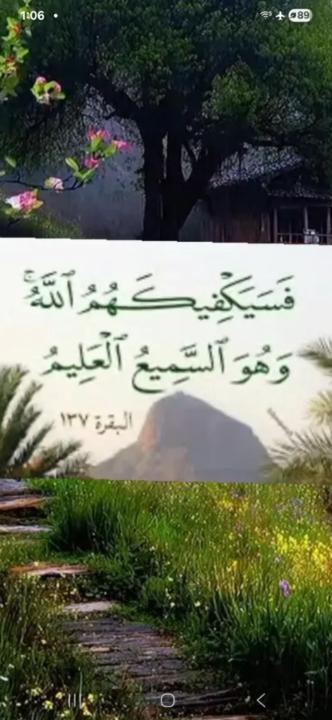 1:06
89
فَسَيَكْفِيكَهُمُ ٱللَّهُ ۚ
وَهُوَ ٱلسَّمِيعُ ٱلْعَلِيمُ
البقرة ١٣٧